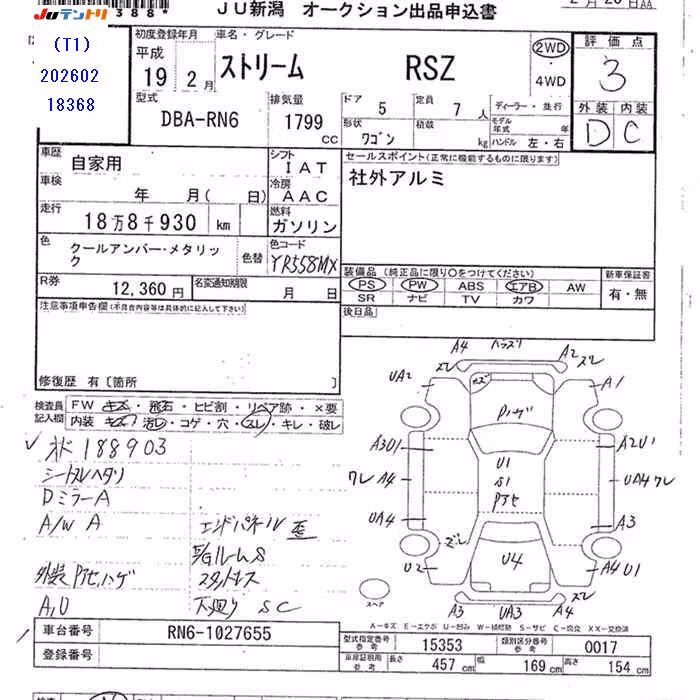 JUテントリ 388*
JU新潟 オークション出品申込書
(T1)
202602
18368
初度登録年月
平成
19 2月
車名・グレード
ストリーム RSZ
2WD
4WD
評価点
3
外装 内装
D C
型式
DBA-RN6
排気量
1799 cc
ドア 5
定員 7 人
ディーラー・並行
形状
ワゴン
積載 kg
モデル年式 年
ハンドル 左・右
車歴 自家用
シフト
IAT
セールスポイント(正常に機能するものに限ります)
社外アルミ
車検 年 月( 日)
冷房
AAC
走行 18万8千930 km
燃料
ガソリン
色 クールアンバー・メタリック
色替
色コード
YR558MX
R券 12,360円
名変通知期限 月 日
装備品 (純正品に限り○をつけてください)
PS PW ABS エアB AW
SR ナビ TV カワ
新車保証書
有・無
注意事項申告欄(不具合内容等は具体的に記入して下さい)
後日品
修復歴 有〔箇所 〕
検査員記入欄
FW キズ・飛石・ヒビ割・リペア跡・×要
内装 キズ・汚レ・コゲ・穴・スレ・キレ・破レ
メ 188903
シートスレヘタリ
DミラーA
A/W A
エンドパネル歪
E/GルームS
外装Pアセ,ハゲ
スタッドレス
A,U
下廻り SC
A4 ハズリ A2 ズレ
UA2 A1
キズ
Pハゲ
A3U1 A2U1
U1
S1
Pアセ
ワレ A4 UA4 ワレ
UA4 A3
ズレ
U4
U2 A4 U1
スペア
A3 UA3 A4 ズレ
A-キズ E-エクボ U-凹み W-補修跡 S-サビ C-腐食 XX-交換済
車台番号 RN6-1027655
登録番号
型式指定番号 参考 15353
類別区分番号 参考 0017
車庫証明用 参考
長さ 457 cm
幅 169 cm
高さ 154 cm